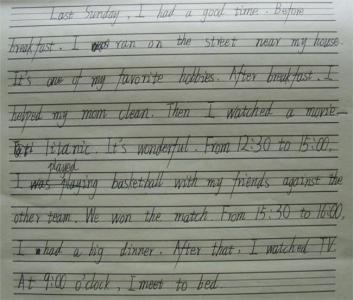 Last Sunday, I had a good time. Before
breakfast. I ran on the street near my house.
It's one of my favorite hobbies. After breakfast. I
helped my mom clean. Then I watched a movie—
Titanic. It's wonderful. From 12:30 to 15:00,
played
I was playing basketball with my friends against the
other team. We won the match. From 15:30 to 16:00,
I had a big dinner. After that, I watched TV.
At 9:00 o'clock, I meet to bed.